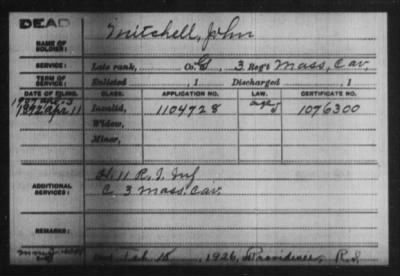 DEAD
Mitchell, John
NAME OF SOLDIER:
SERVICE: Late rank, Co. G, 3 Reg't Mass. Cav.
TERM OF SERVICE: Enlisted , 1 Discharged , 1
DATE OF FILING. CLASS. APPLICATION NO. LAW. CERTIFICATE NO.
1892 Apr 11 Invalid, 1104728 1076300
Widow,
Minor,
H. 11 R.I. Inf
ADDITIONAL SERVICES: C. 3 Mass. Cav.
REMARKS:
Feb. 15, 1926, Providence, R.I.